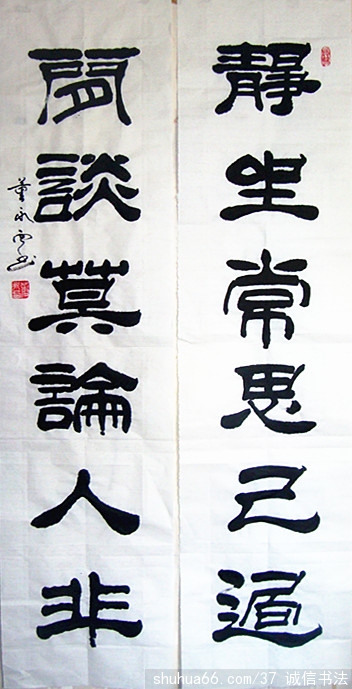 靜坐常思己過
閒談莫論人非
董永书
shuhua66.com/37 诚信书法